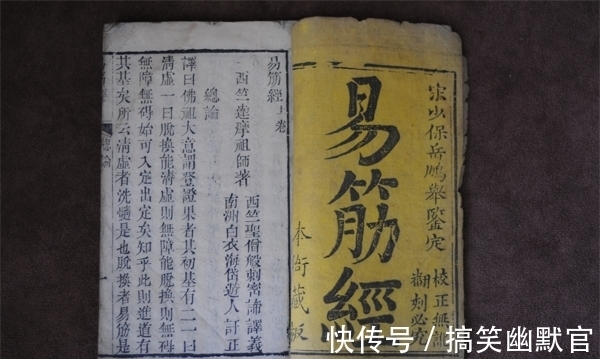 宋少保岳鵬舉鑒定
易筋經
校正無訛
翻刻必究
本衙藏板
易筋經上卷
西竺達摩祖師著
西竺聖僧般刺密諦譯義
南洲白衣海岱遊人訂正
總論
譯曰佛祖大意謂登證果者其初基有二一曰
清虛一曰脫換能清虛則無障能脫換則無碍
無障無碍始可入定出定矣知乎此則進道有
其基矣所云清虛者洗髓是也脫換者易筋是
總論
快传号 / 搞笑幽默官